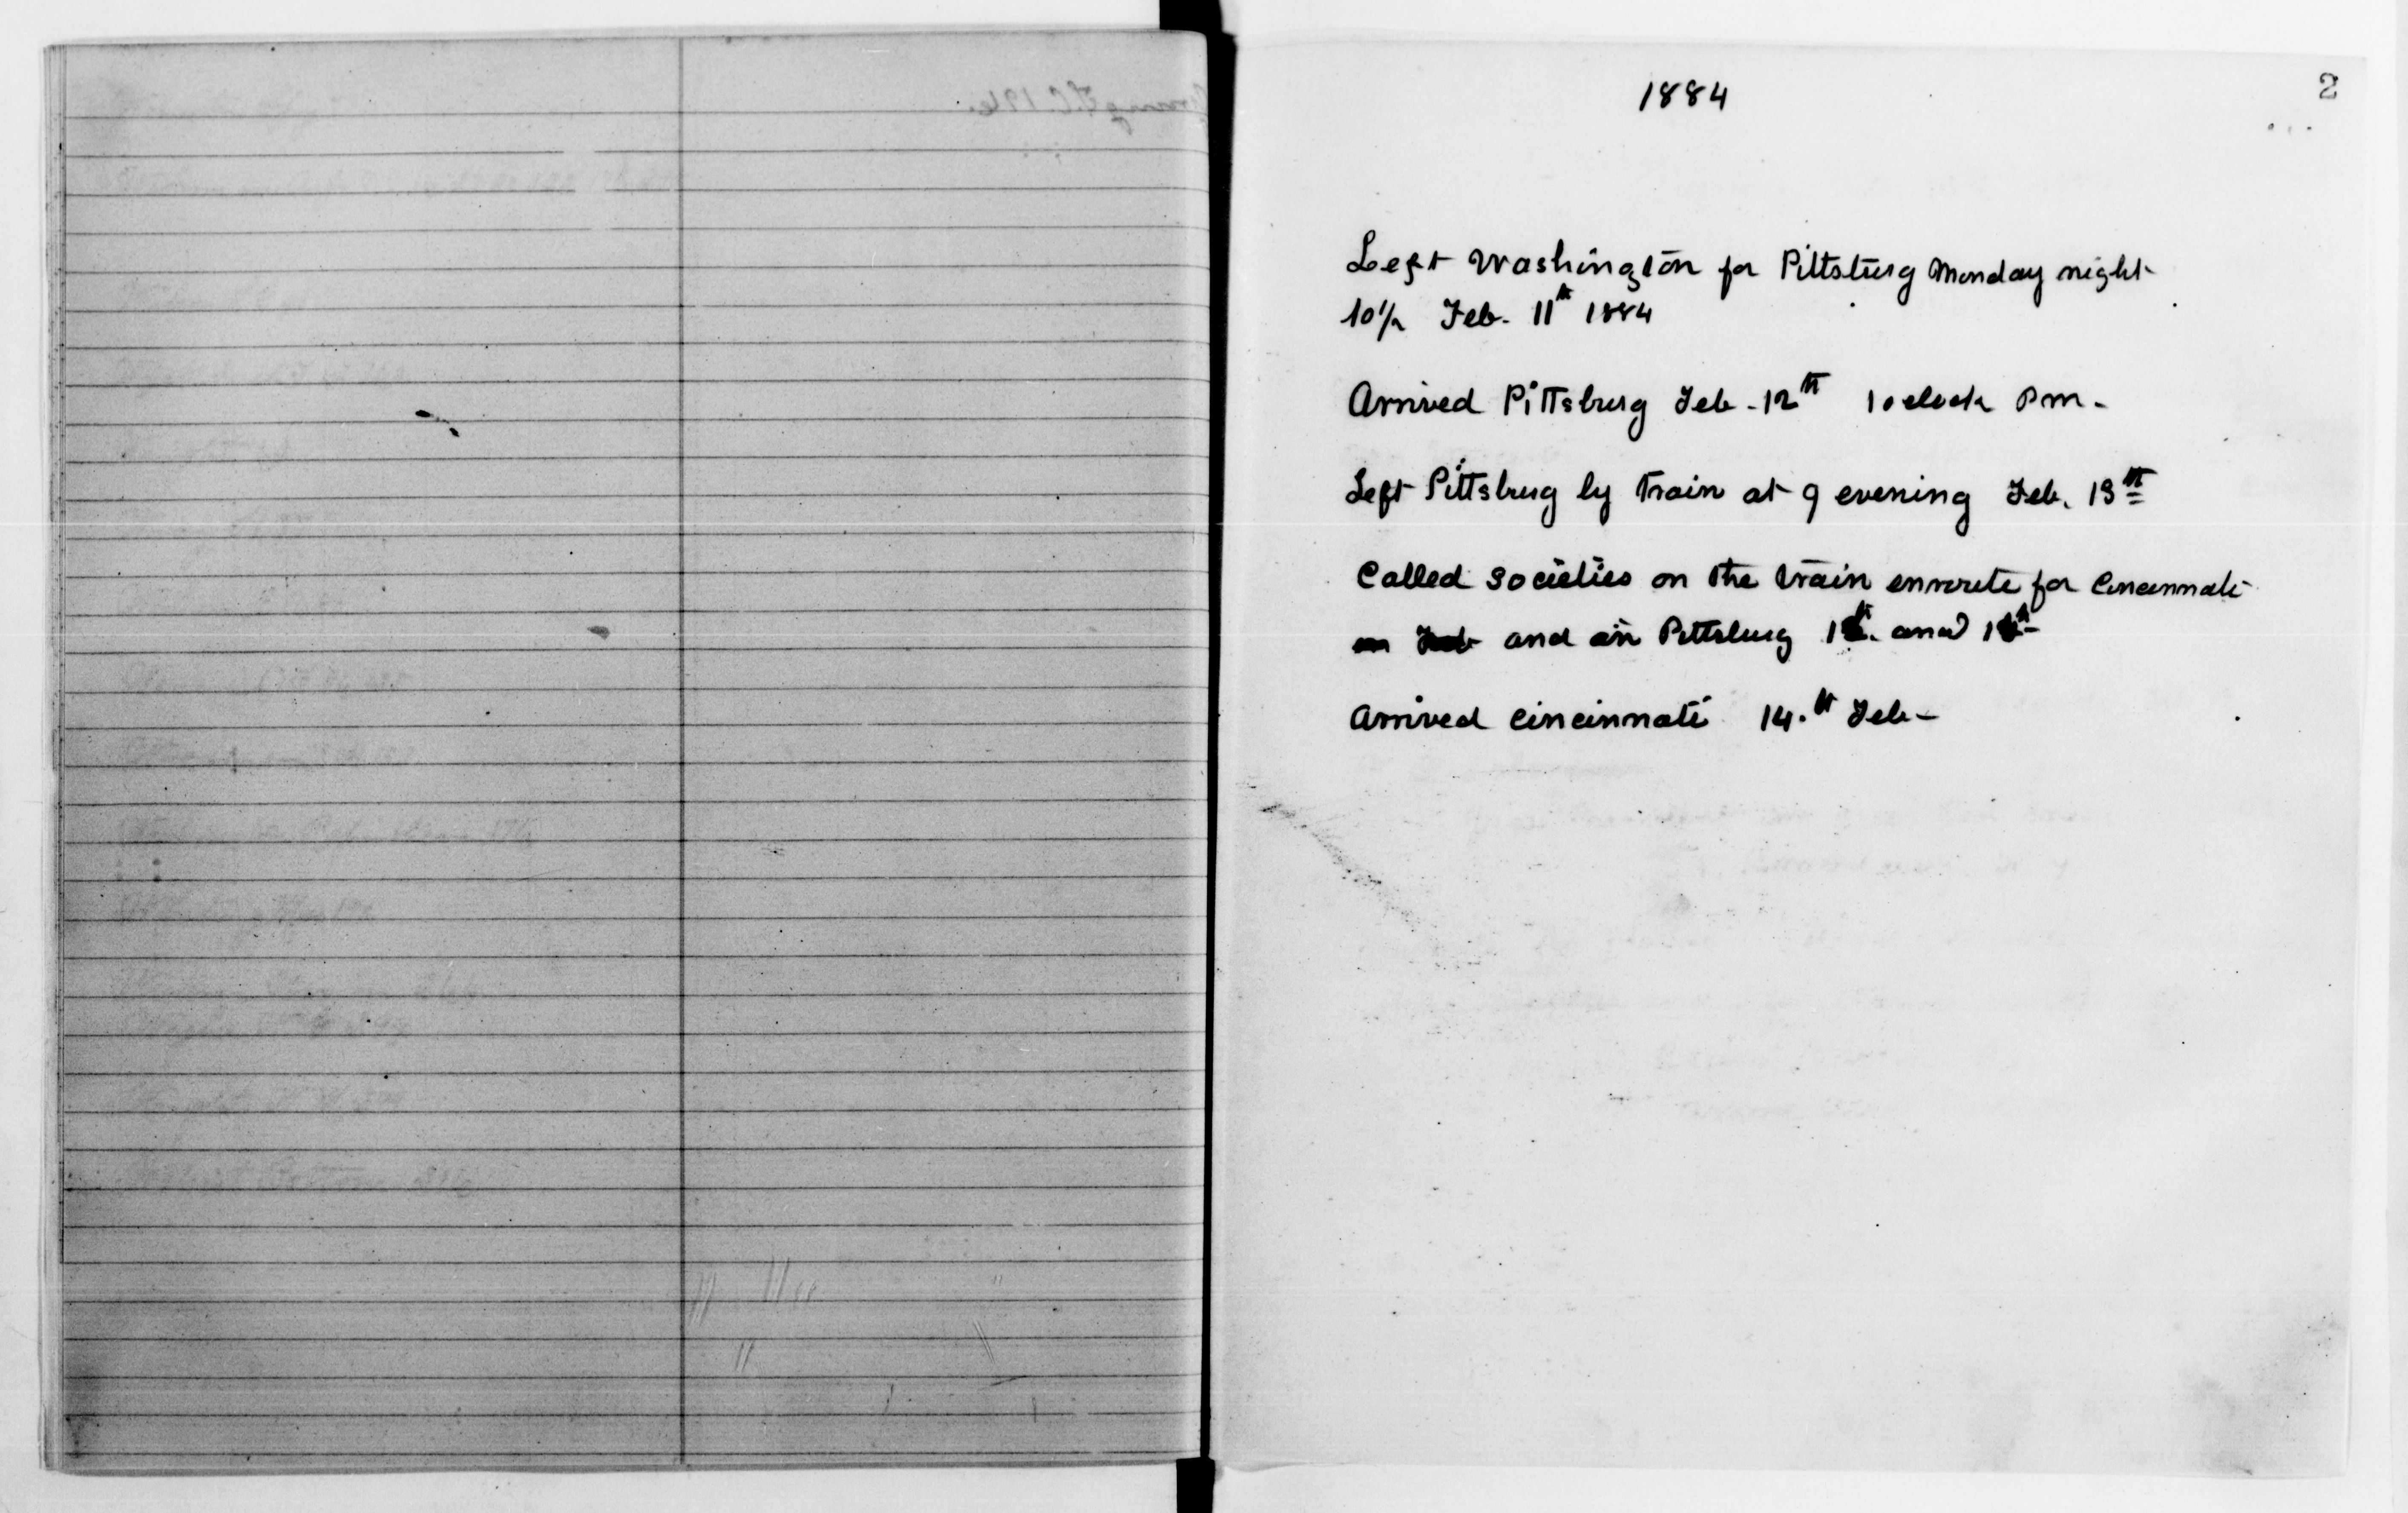 2
1884
Left Washington for Pittsburg Monday night
10½ Feb. 11th 1884
Arrived Pittsburg Feb - 12th 1 oclock P m -
Left Pittsburg by Train at 9 evening Feb. 13th
Called Societies on the train enroute for Cincinnati
and in Pittsburg and
Arrived Cincinnati 14.th Feb -